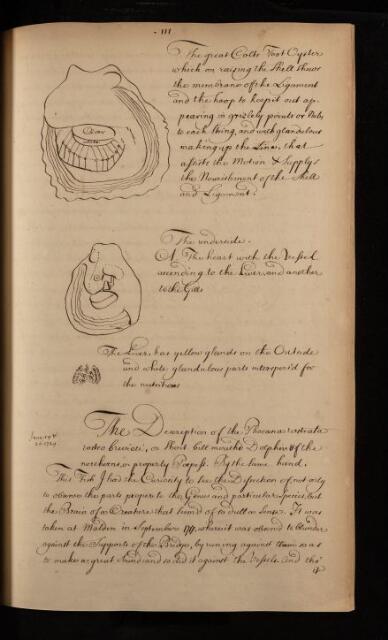 111
The great Colts Foot Oyster
which on raising the Shell shews
the membrane off the Ligament
and the hoop to keep it out ap-
pearing in grizlely points or Nubs
to each string, and with glandulous
making up the Lines that
assists the Motion & Supplys
the Nourishment of the Shell
and Ligament.
The underside.
A. The heart with the Vessel
ascending to the Liver, and another
to the Gills
The Liver, has yellow glands on the Outside
and white glandulous parts interspers'd for
the nutritious
The Description of the Phocæna rostrata
or Short bill mouthd Dolphin of the
northerns, or properly Porpess. By the same hand.
This Fish I had the Curiosity to see the Dissection of not only
to observe the parts proper to the Genus and particular Species, but
the Brain of a Creature that seem'd of so dull a Sense. It was
taken at Maldon in September where it was observd to blunder
against the Supports of the Bridge, by runing against them so as
to make a great sound and so did it against the Vessels. And tho'
it